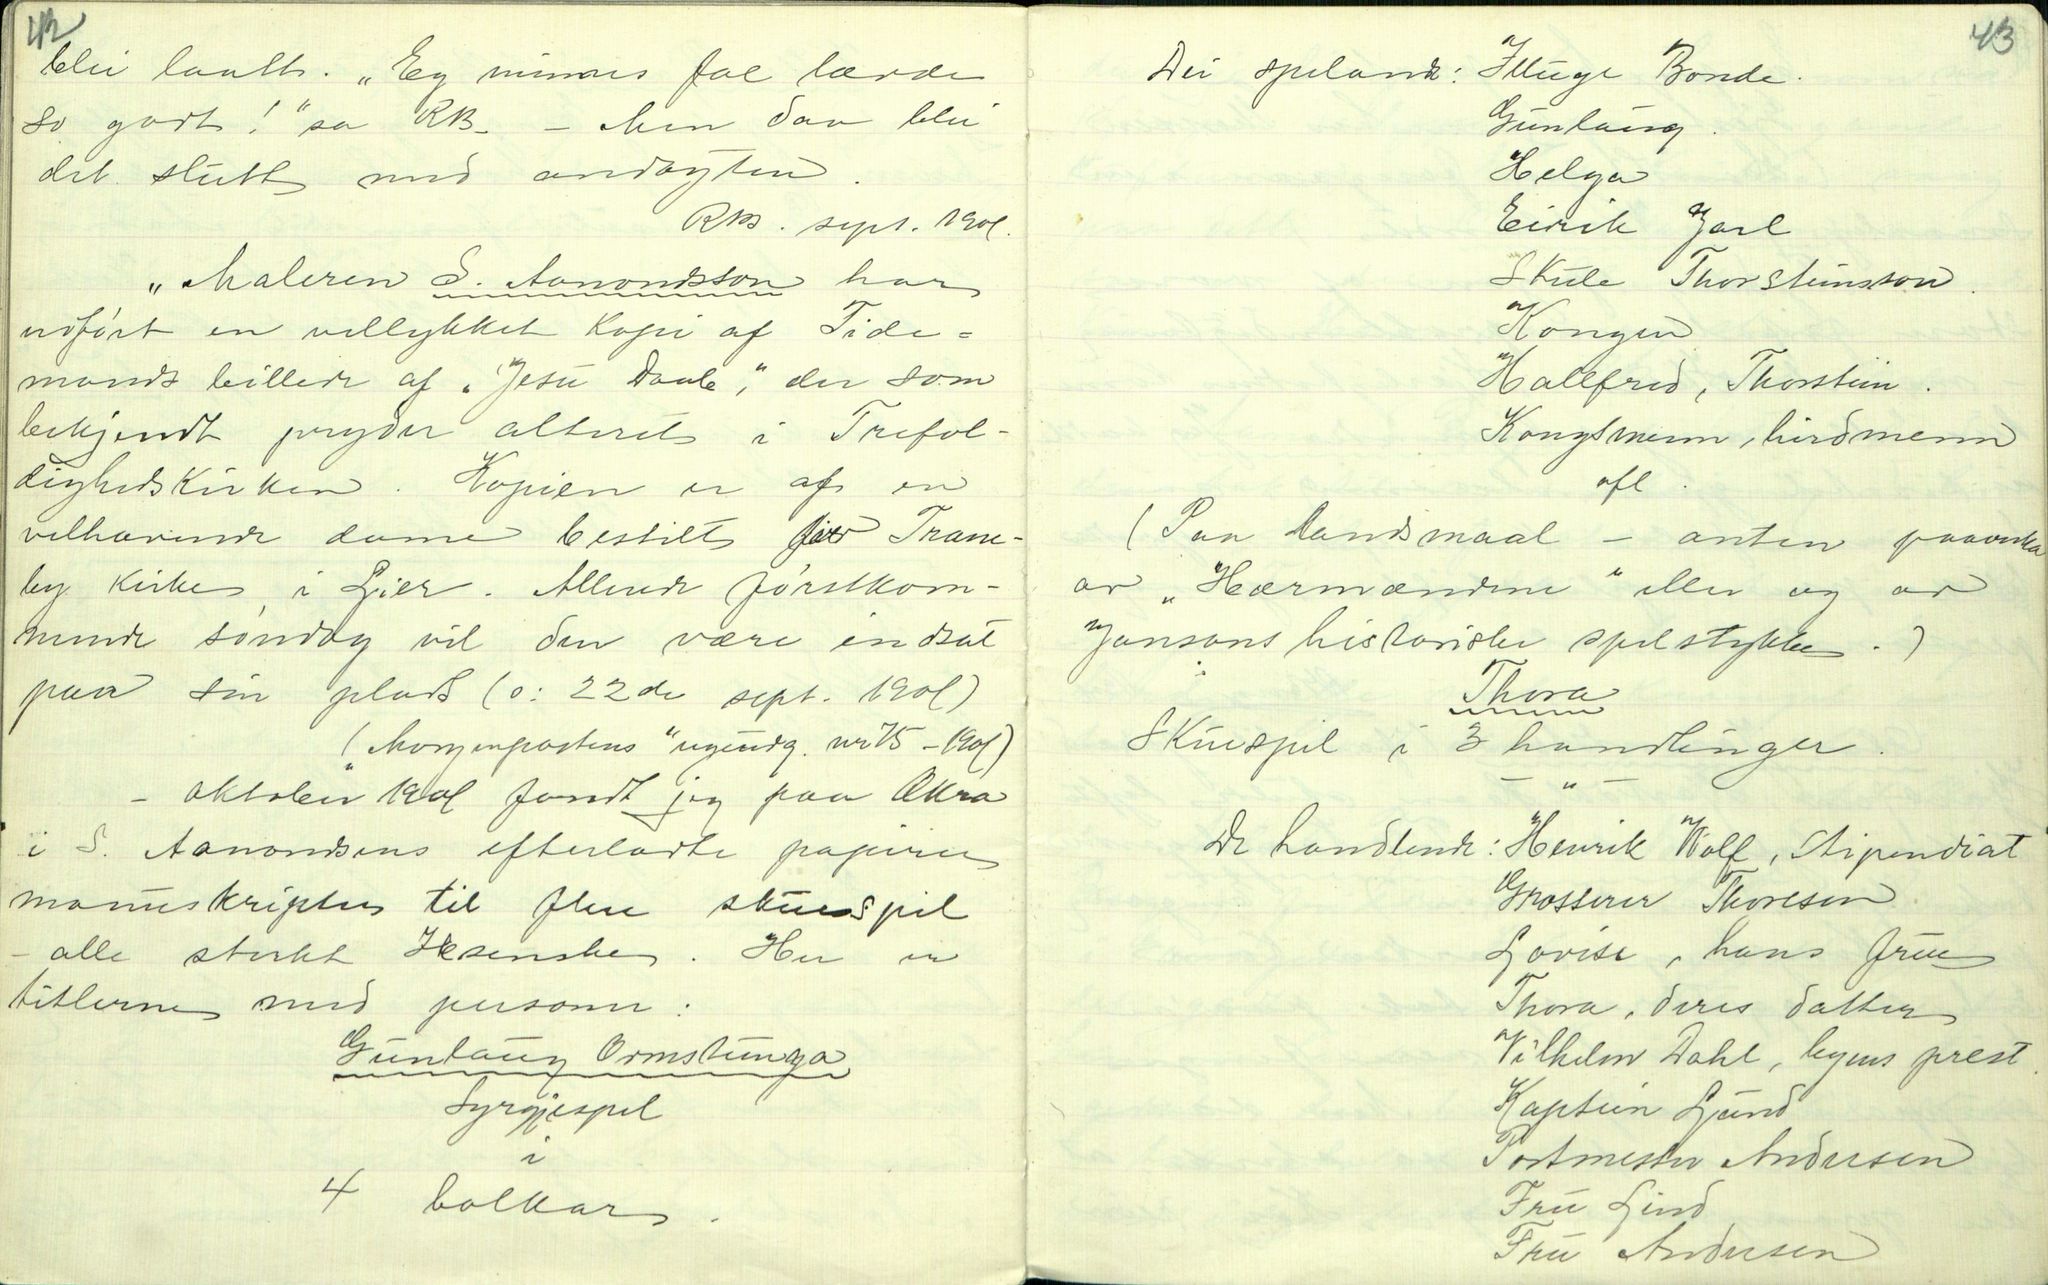 42
blei laatt. „Eg minnes fol lærde
so godt!" sa RB. – Men daa blei
det slutt med andagten.
RB. sept. 1901.
„Maleren S. Aanondsson har
udført en vellykket kopi af Tide=
mands billede af „Jesu Daab", der som
bekjendt pryder alteret i Trefol-
dighedskirken. Kopien er af en
velhavende dame bestilt for Trane-
by kirke i Lier. Allerede førstkom-
mende søndag vil den være indsat
paa sin plads (o: 22de sept. 1901)
(„Morgenpostens" ugeudg. nr 75 – 1901)
– oktober 1901 fandt jeg paa Økra
i S. Aanondsens efterladte papirer
manuskripter til flere skuespil
– alle sterkt Ibsenske. Her er
titlerne med personer:
Gunlaug Ormstunga
Syrgjespel
i
4 bolkar.
43
Dei spelande: Illuge Bonde.
Gunlaug.
Helga
Eirik Jarl
Skule Thorsteinsson.
Kongen
Hallfred, Thorstein.
Kongsmenn, hirdmenn
ofl.
(Paa landsmaal – anten paaverka
av „Hærmændene" eller og av
Jansons historiske spelstykke.)
Thora
Skuespil i 3 handlinger.
– „ –
De handlende: Henrik Wolf, stipendiat
Grosserer Thoresen
Lovise, hans frue
Thora, deres datter
Vilhelm Dahl, byens prest.
Kaptein Lund
Postmester Andersen
Fru Lind
Fru Andersen